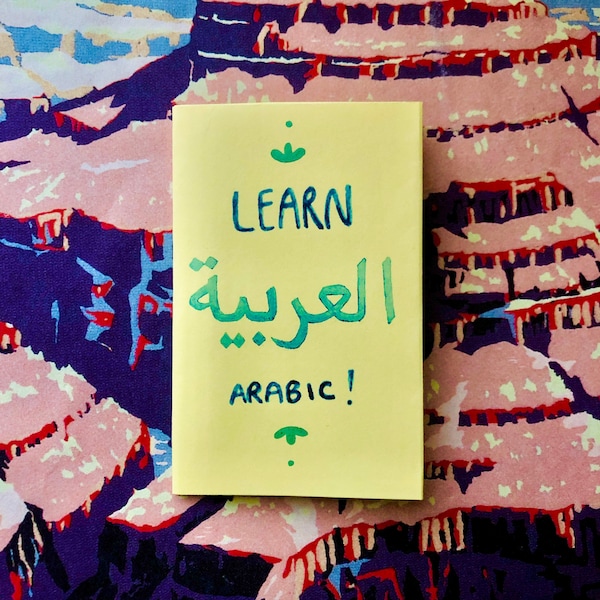 LEARN
العربية
ARABIC!